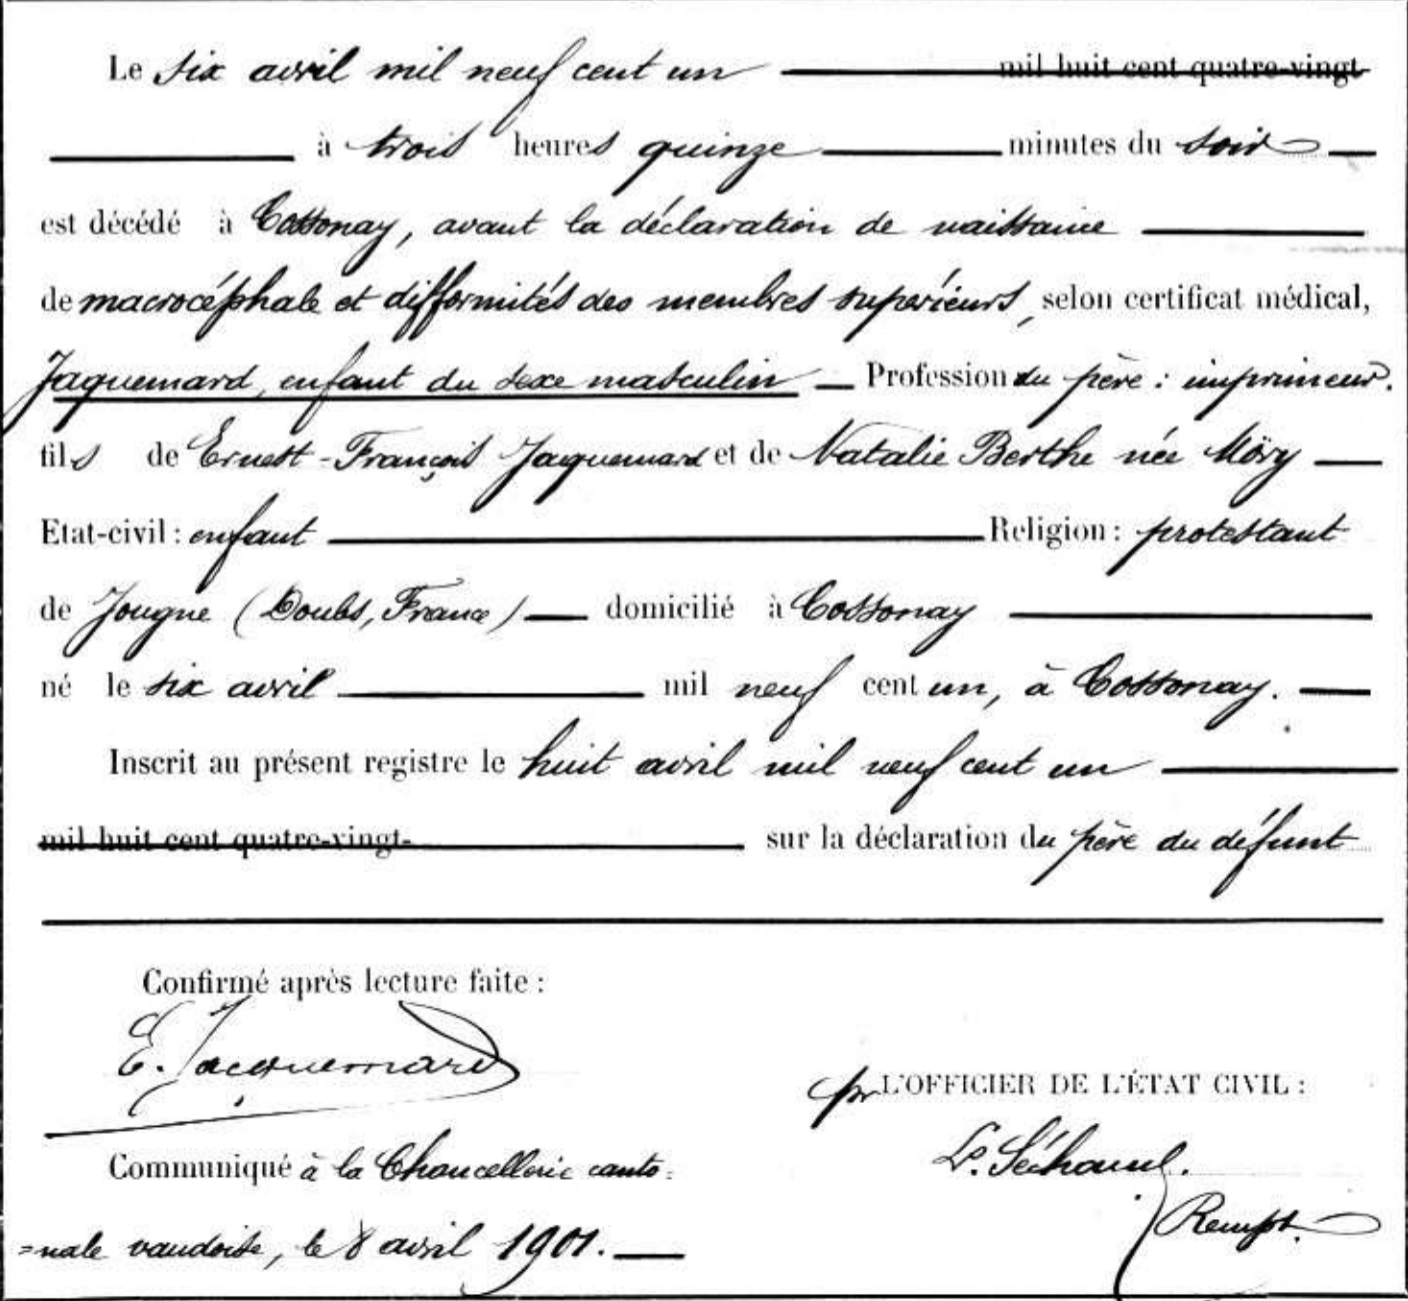 Le six avril mil neuf cent un mil huit cent quatre-vingt
à trois heures quinze minutes du soir
est décédé à Cossonay, avant la déclaration de naissance
de macrocéphale et difformités des membres supérieurs, selon certificat médical,
Jaquemard, enfant du sexe masculin Profession du père : imprimeur.
fils de Ernest-François Jaquemard et de Natalie Berthe née Möry
Etat-civil : enfant Religion : protestant
de Jougne (Doubs, France) domicilié à Cossonay
né le six avril mil neuf cent un, à Cossonay.
Inscrit au présent registre le huit avril mil neuf cent un
mil huit cent quatre-vingt- sur la déclaration du père du défunt
Confirmé après lecture faite :
E. Jacquemard
pr L'OFFICIER DE L'ÉTAT CIVIL :
Communiqué à la Chancellerie canto=
=nale vaudoise, le 8 avril 1901.